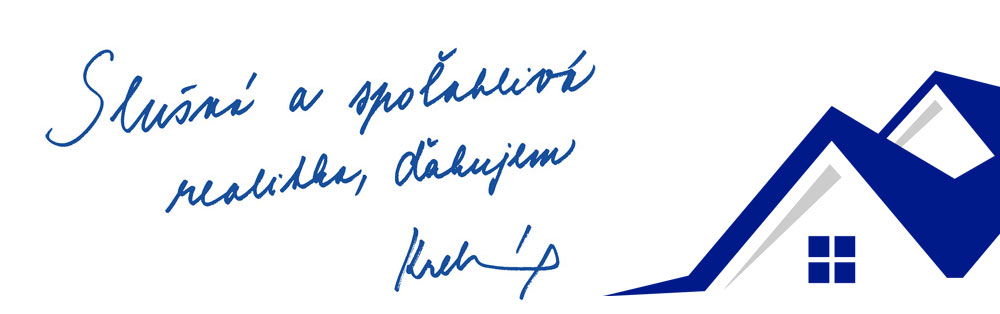 Slušná a spoľahlivá
realitka, ďakujem